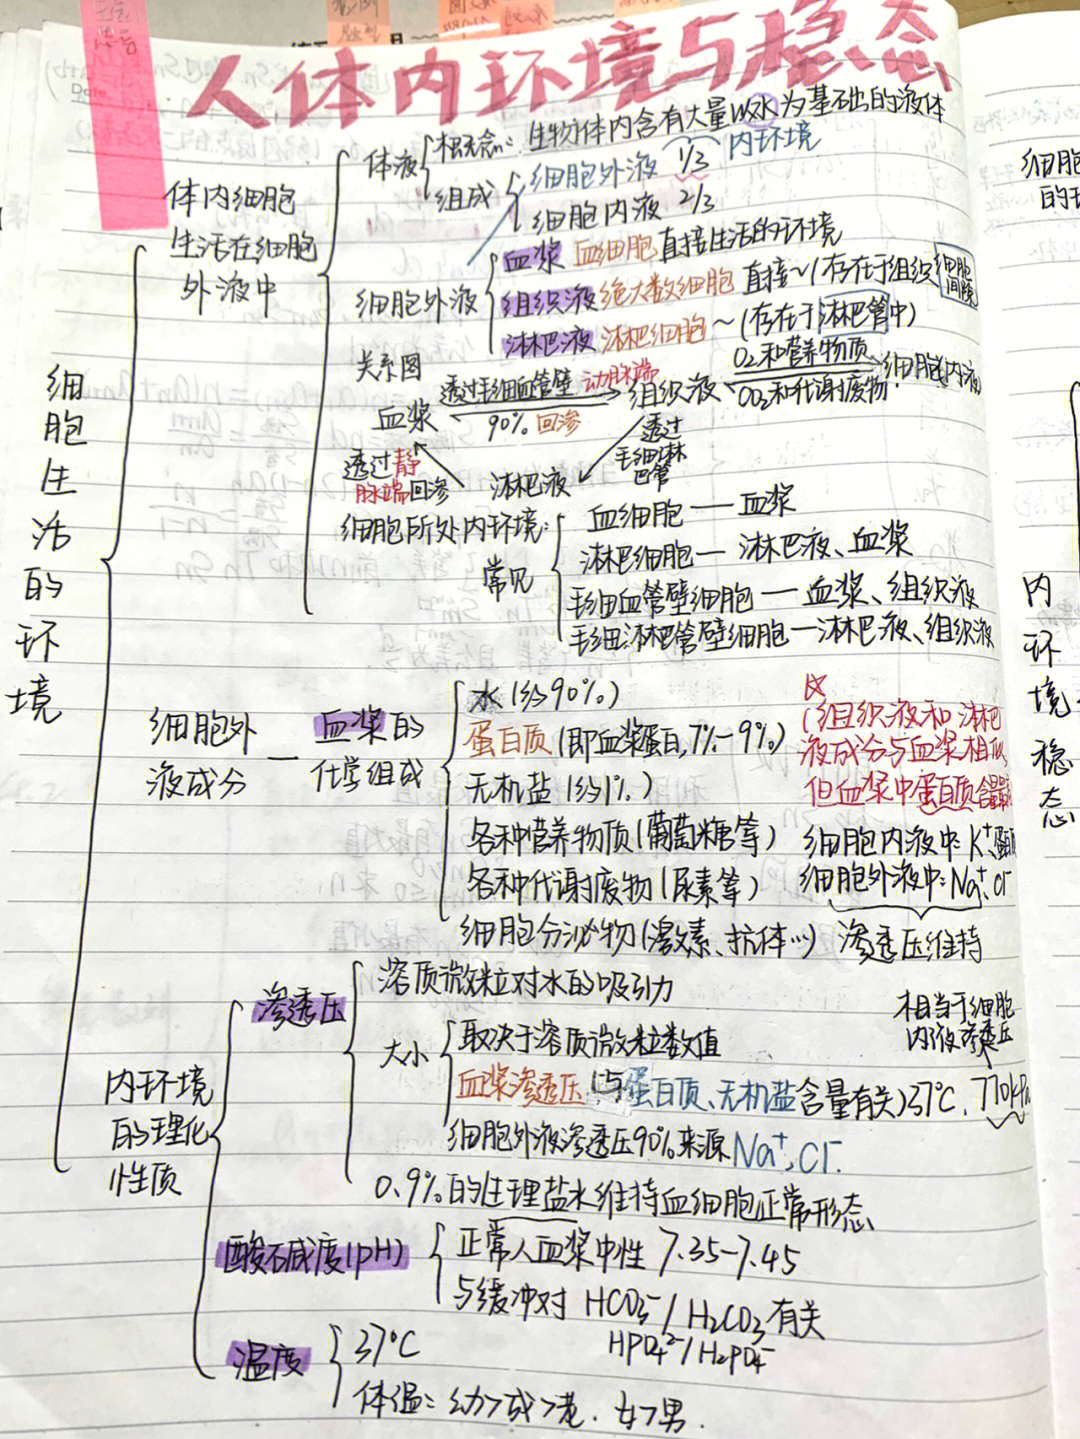 人体内环境与稳态
体内细胞
生活在细胞
外液中
体液
概念: 生物体内含有大量以水为基础的液体
组成
细胞外液 1/3 内环境
细胞内液 2/3
细胞外液
血浆 血细胞直接生活的环境
组织液 绝大数细胞 直接~(存在于组织细胞间隙
淋巴液 淋巴细胞~(存在于淋巴管中)
关系图
血浆
透过毛细血管壁 动脉端
90% 回渗
组织液
O₂和营养物质
CO₂和代谢废物
细胞(内液)
透过
毛细淋
巴管
透过静
脉端回渗
淋巴液
细胞所处内环境:
常见
血细胞——血浆
淋巴细胞—淋巴液、血浆
毛细血管壁细胞—血浆、组织液
毛细淋巴管壁细胞—淋巴液、组织液
细胞生活的环境
细胞外
液成分
血浆的
化学组成
水(约90%)
蛋白质(即血浆蛋白,7%-9%)
无机盐(约1%)
各种营养物质(葡萄糖等)
各种代谢废物(尿素等)
细胞分泌物(激素、抗体…)
(组织液和淋巴
液成分与血浆相似,
但血浆中蛋白质含量
细胞内液中:K⁺、蛋
细胞外液中:Na⁺,Cl⁻
渗透压维持
内环境
的理化
性质
渗透压
溶质微粒对水的吸引力
大小
取决于溶质微粒数值
血浆渗透压(与蛋白质、无机盐含量有关)37℃, 770kPa
相当于细胞
内液渗透压
细胞外液渗透压90%来源Na⁺,Cl⁻
0.9%的生理盐水维持血细胞正常形态
酸碱度(pH)
正常人血浆中性 7.35-7.45
与缓冲对 HCO₃⁻/H₂CO₃有关
HPO₄²⁻/H₂PO₄⁻
温度
37℃
体温:幼>成>老. 女>男.
细胞
的
内环境稳态